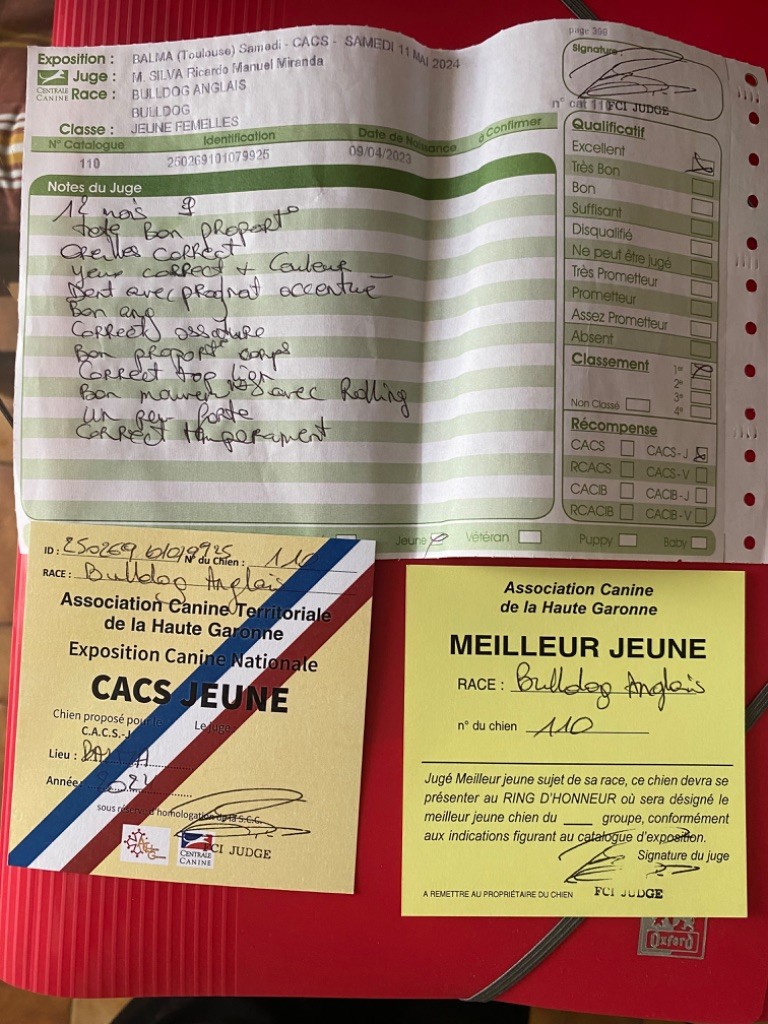 page 390
Exposition : BALMA (Toulouse) Samedi - CACS - SAMEDI 11 MAI 2024
Signature :
CENTRALE CANINE
Juge : M. SILVA Ricardo Manuel Miranda
Race : BULLDOG ANGLAIS
BULLDOG
n° cat 110 FCI JUDGE
Classe : JEUNE FEMELLES
N° Catalogue Identification Date de Naissance à Confirmer
110 250269101079925 09/04/2023
Notes du Juge
12 mois ♀
tete Bon proport°
oreilles correct
yeux correct + Couleur
Dent avec prognat accentué
Bon
Correct ossature
Bon proport° corps
Correct top lien
Bon avec Rolling
un peu forte
Correct temperament
Qualificatif
Excellent
Très Bon
Bon
Suffisant
Disqualifié
Ne peut être jugé
Très Prometteur
Prometteur
Assez Prometteur
Absent
Classement 1er
2e
3e
Non Classé 4e
Récompense
CACS CACS-J
RCACS CACS-V
CACIB CACIB-J
RCACIB CACIB-V
Jeune Vétéran Puppy Baby
ID : 250269 N° du Chien : 110
RACE : Bulldog Anglais
Association Canine Territoriale
de la Haute Garonne
Exposition Canine Nationale
CACS JEUNE
Chien proposé pour le Le juge :
C.A.C.S.-J
Lieu : BALMA
Année : 2024
sous réserve d'homologation de la S.C.C.
CENTRALE CANINE
FCI JUDGE
Association Canine
de la Haute Garonne
MEILLEUR JEUNE
RACE : Bulldog Anglais
n° du chien 110
Jugé Meilleur jeune sujet de sa race, ce chien devra se
présenter au RING D'HONNEUR où sera désigné le
meilleur jeune chien du ____ groupe, conformément
aux indications figurant au catalogue d'exposition.
Signature du juge
A REMETTRE AU PROPRIÉTAIRE DU CHIEN FCI JUDGE
Oxford